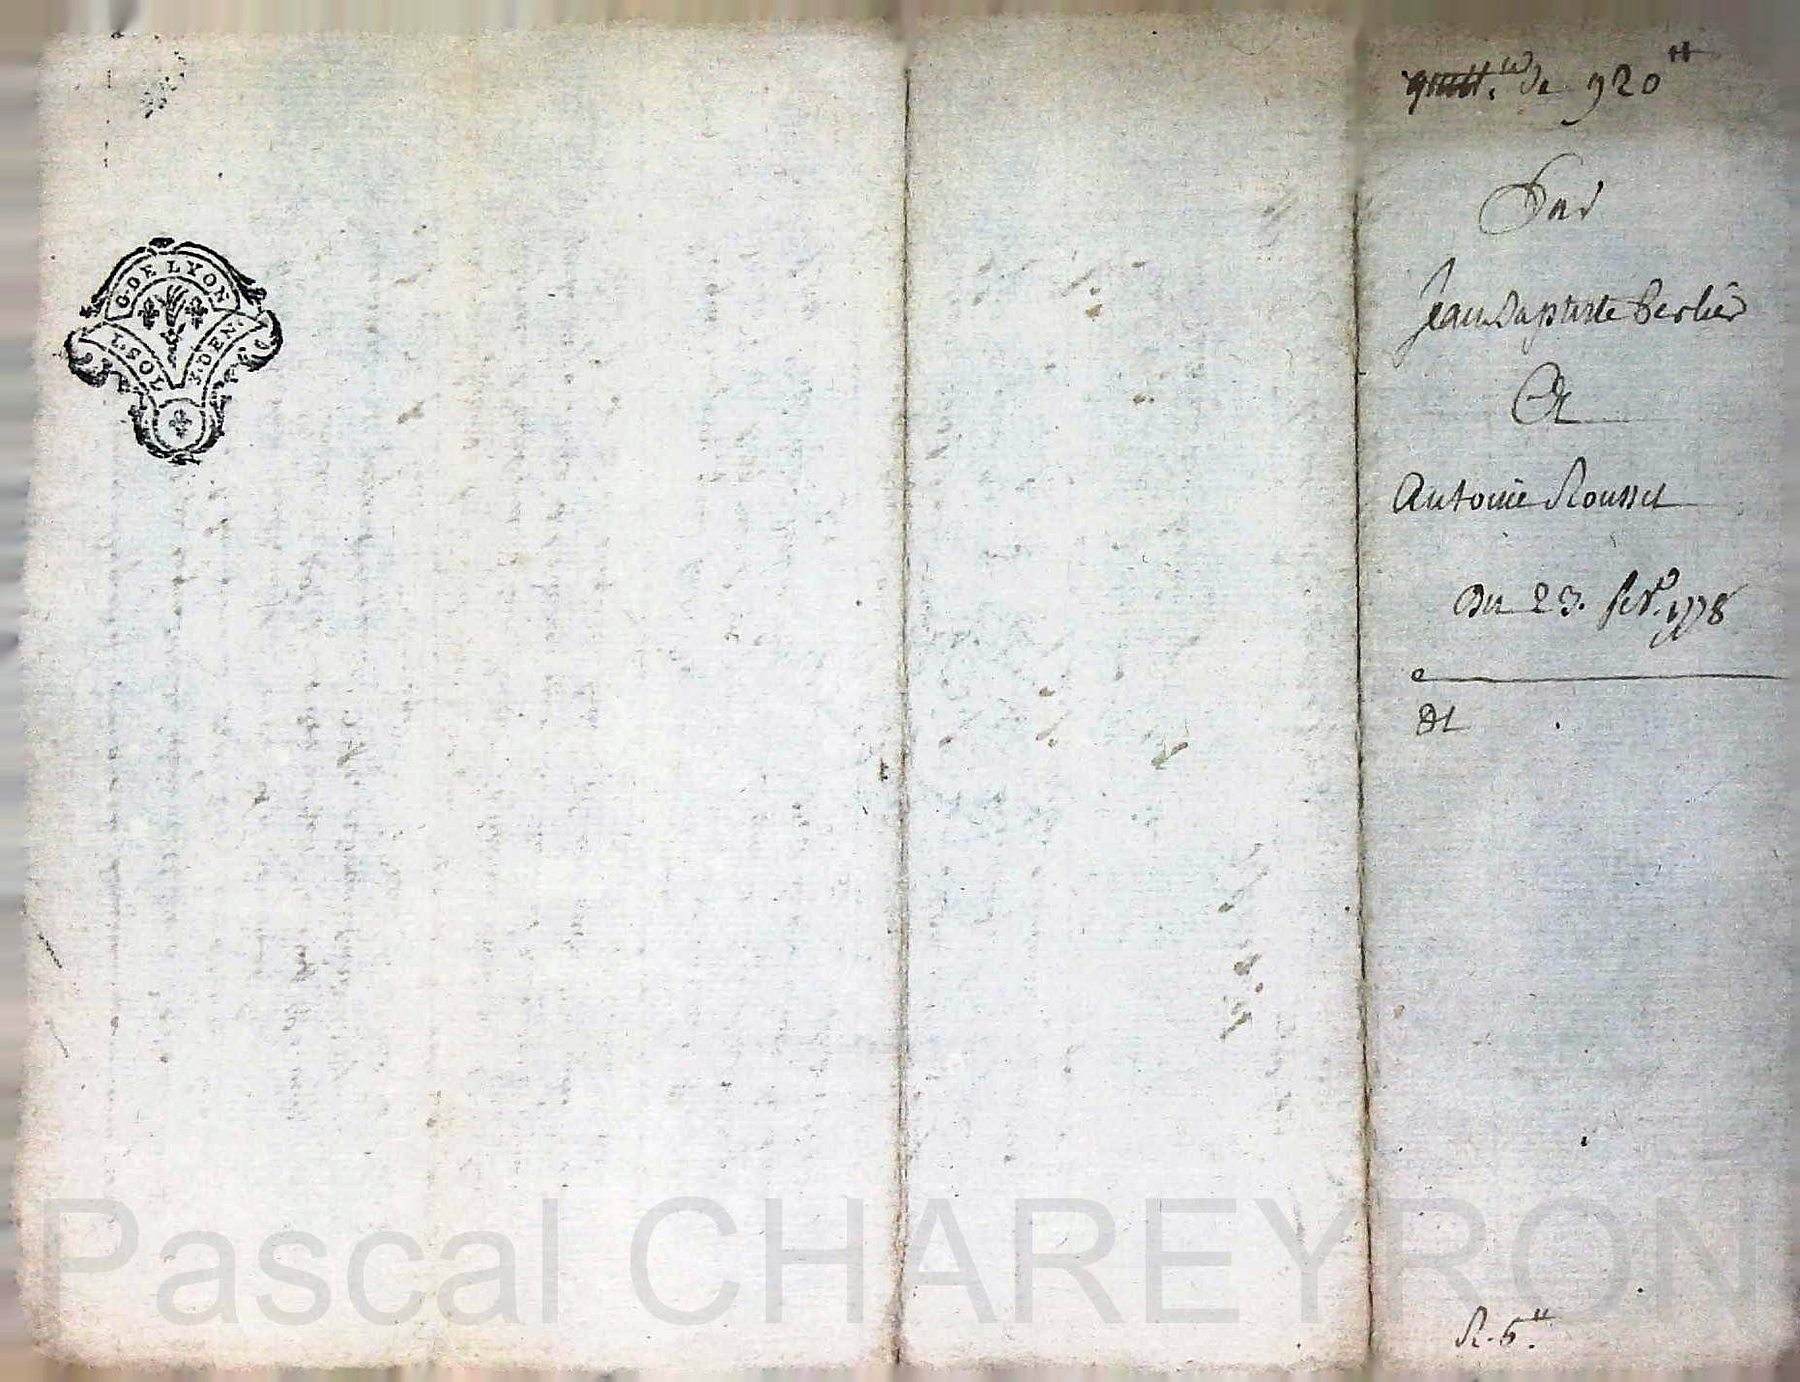 G. DE LYON
1. SOL
4. DEN.
quitt.ce de 920 ₶
Par
Jean Baptiste Berlier
A
Antoine Rousset
Du 23. fev.r 1778
R. 6 ₶.
Pascal CHAREYRON